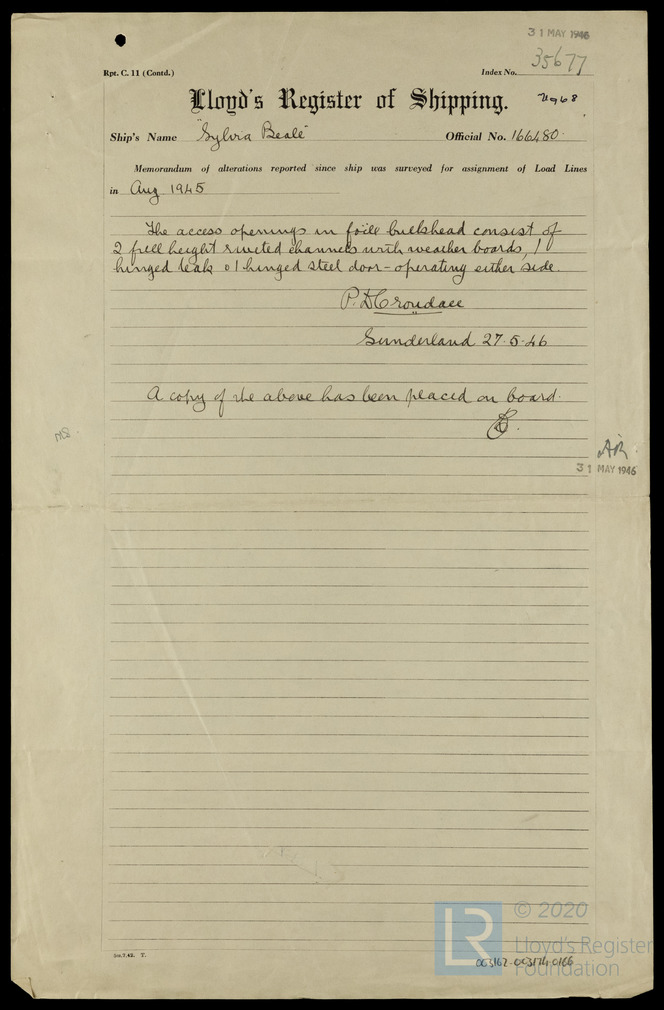 31 MAY 1946
35677
Rpt. C. 11 (Contd.) Index No.
Lloyd's Register of Shipping.
Ship's Name "Sylvia Beale" Official No. 166480.
Memorandum of alterations reported since ship was surveyed for assignment of Load Lines
in Aug 1945
The access openings in fo'cle bulkhead consist of
2 full height riveted channels with weather boards, 1
hinged teak & 1 hinged steel door - operating either side.
Sunderland 27.5.46
A copy of the above has been placed on board.
31 MAY 1946
© 2020
LR
Lloyd's Register
Foundation
003162-003174-0166